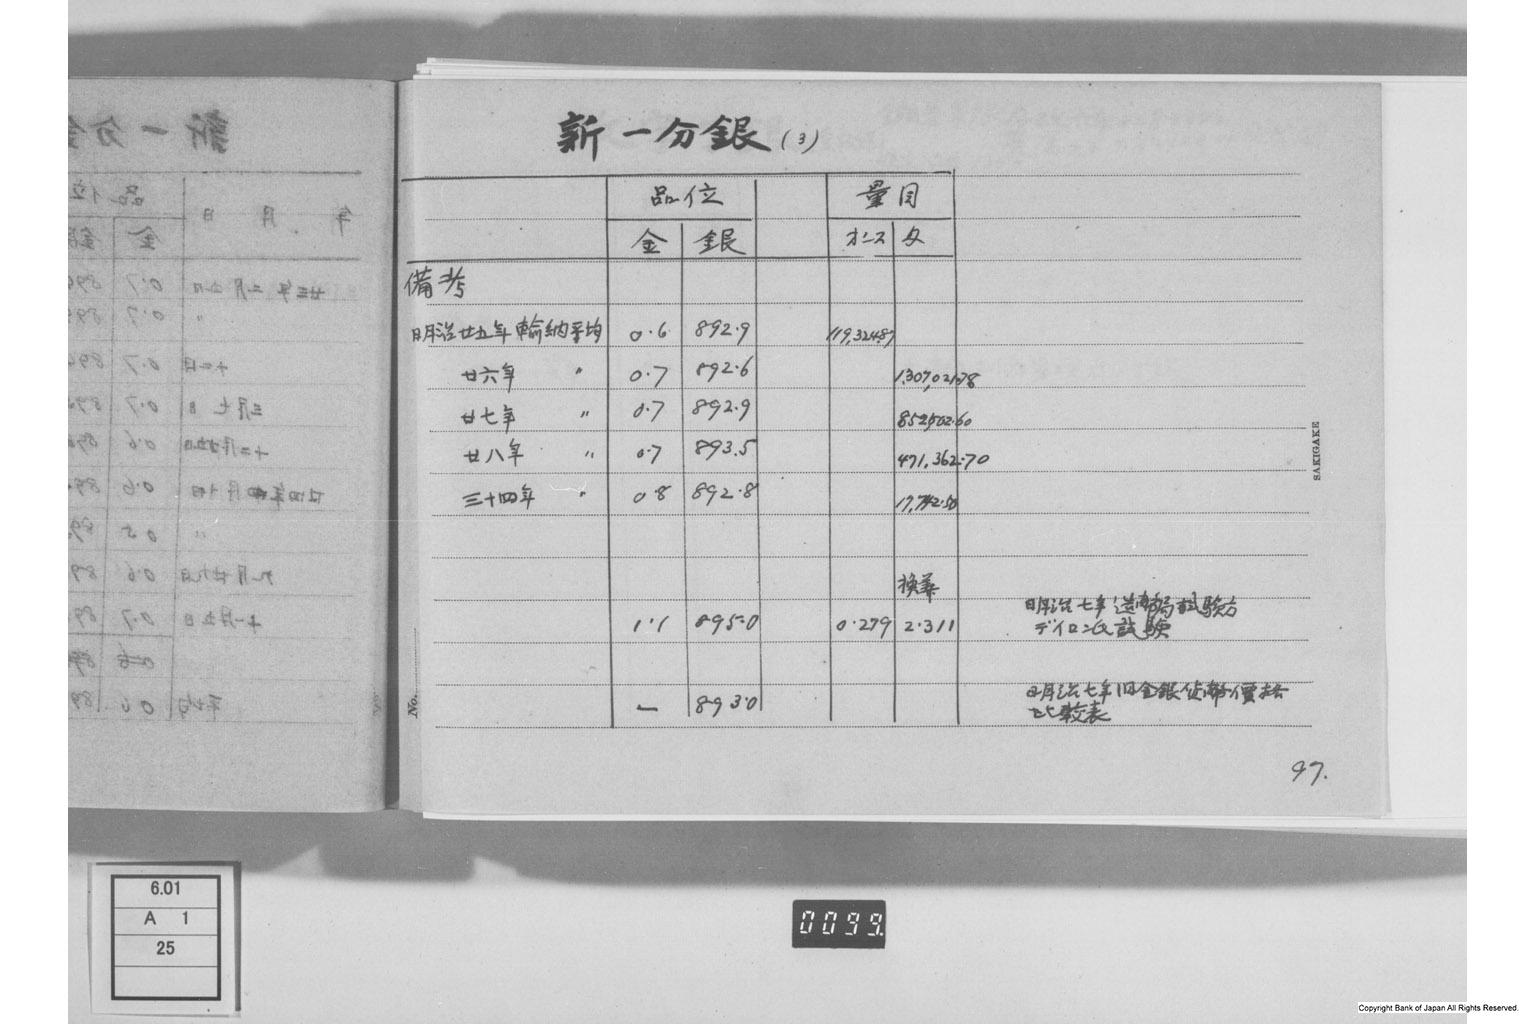 新一分銀(3)
品位 量目
金 銀 オンス 匁
備考
明治廿五年輸納平均 0.6 892.9 119,324.87
廿六年 〃 0.7 892.6 1,307,021.78
廿七年 〃 0.7 892.9 852,502.60
廿八年 〃 0.7 893.5 471,362.70
三十四年 〃 0.8 892.8 17,742.50
換算
明治七年造幣局試験方
1.1 895.0 0.279 2.311
デイロン氏試験
明治七年旧金銀貨幣價格
— 893.0
比較表
97.
No.
SAKIGAKE
6.01
A 1
25
0099.
Copyright Bank of Japan All Rights Reserved.